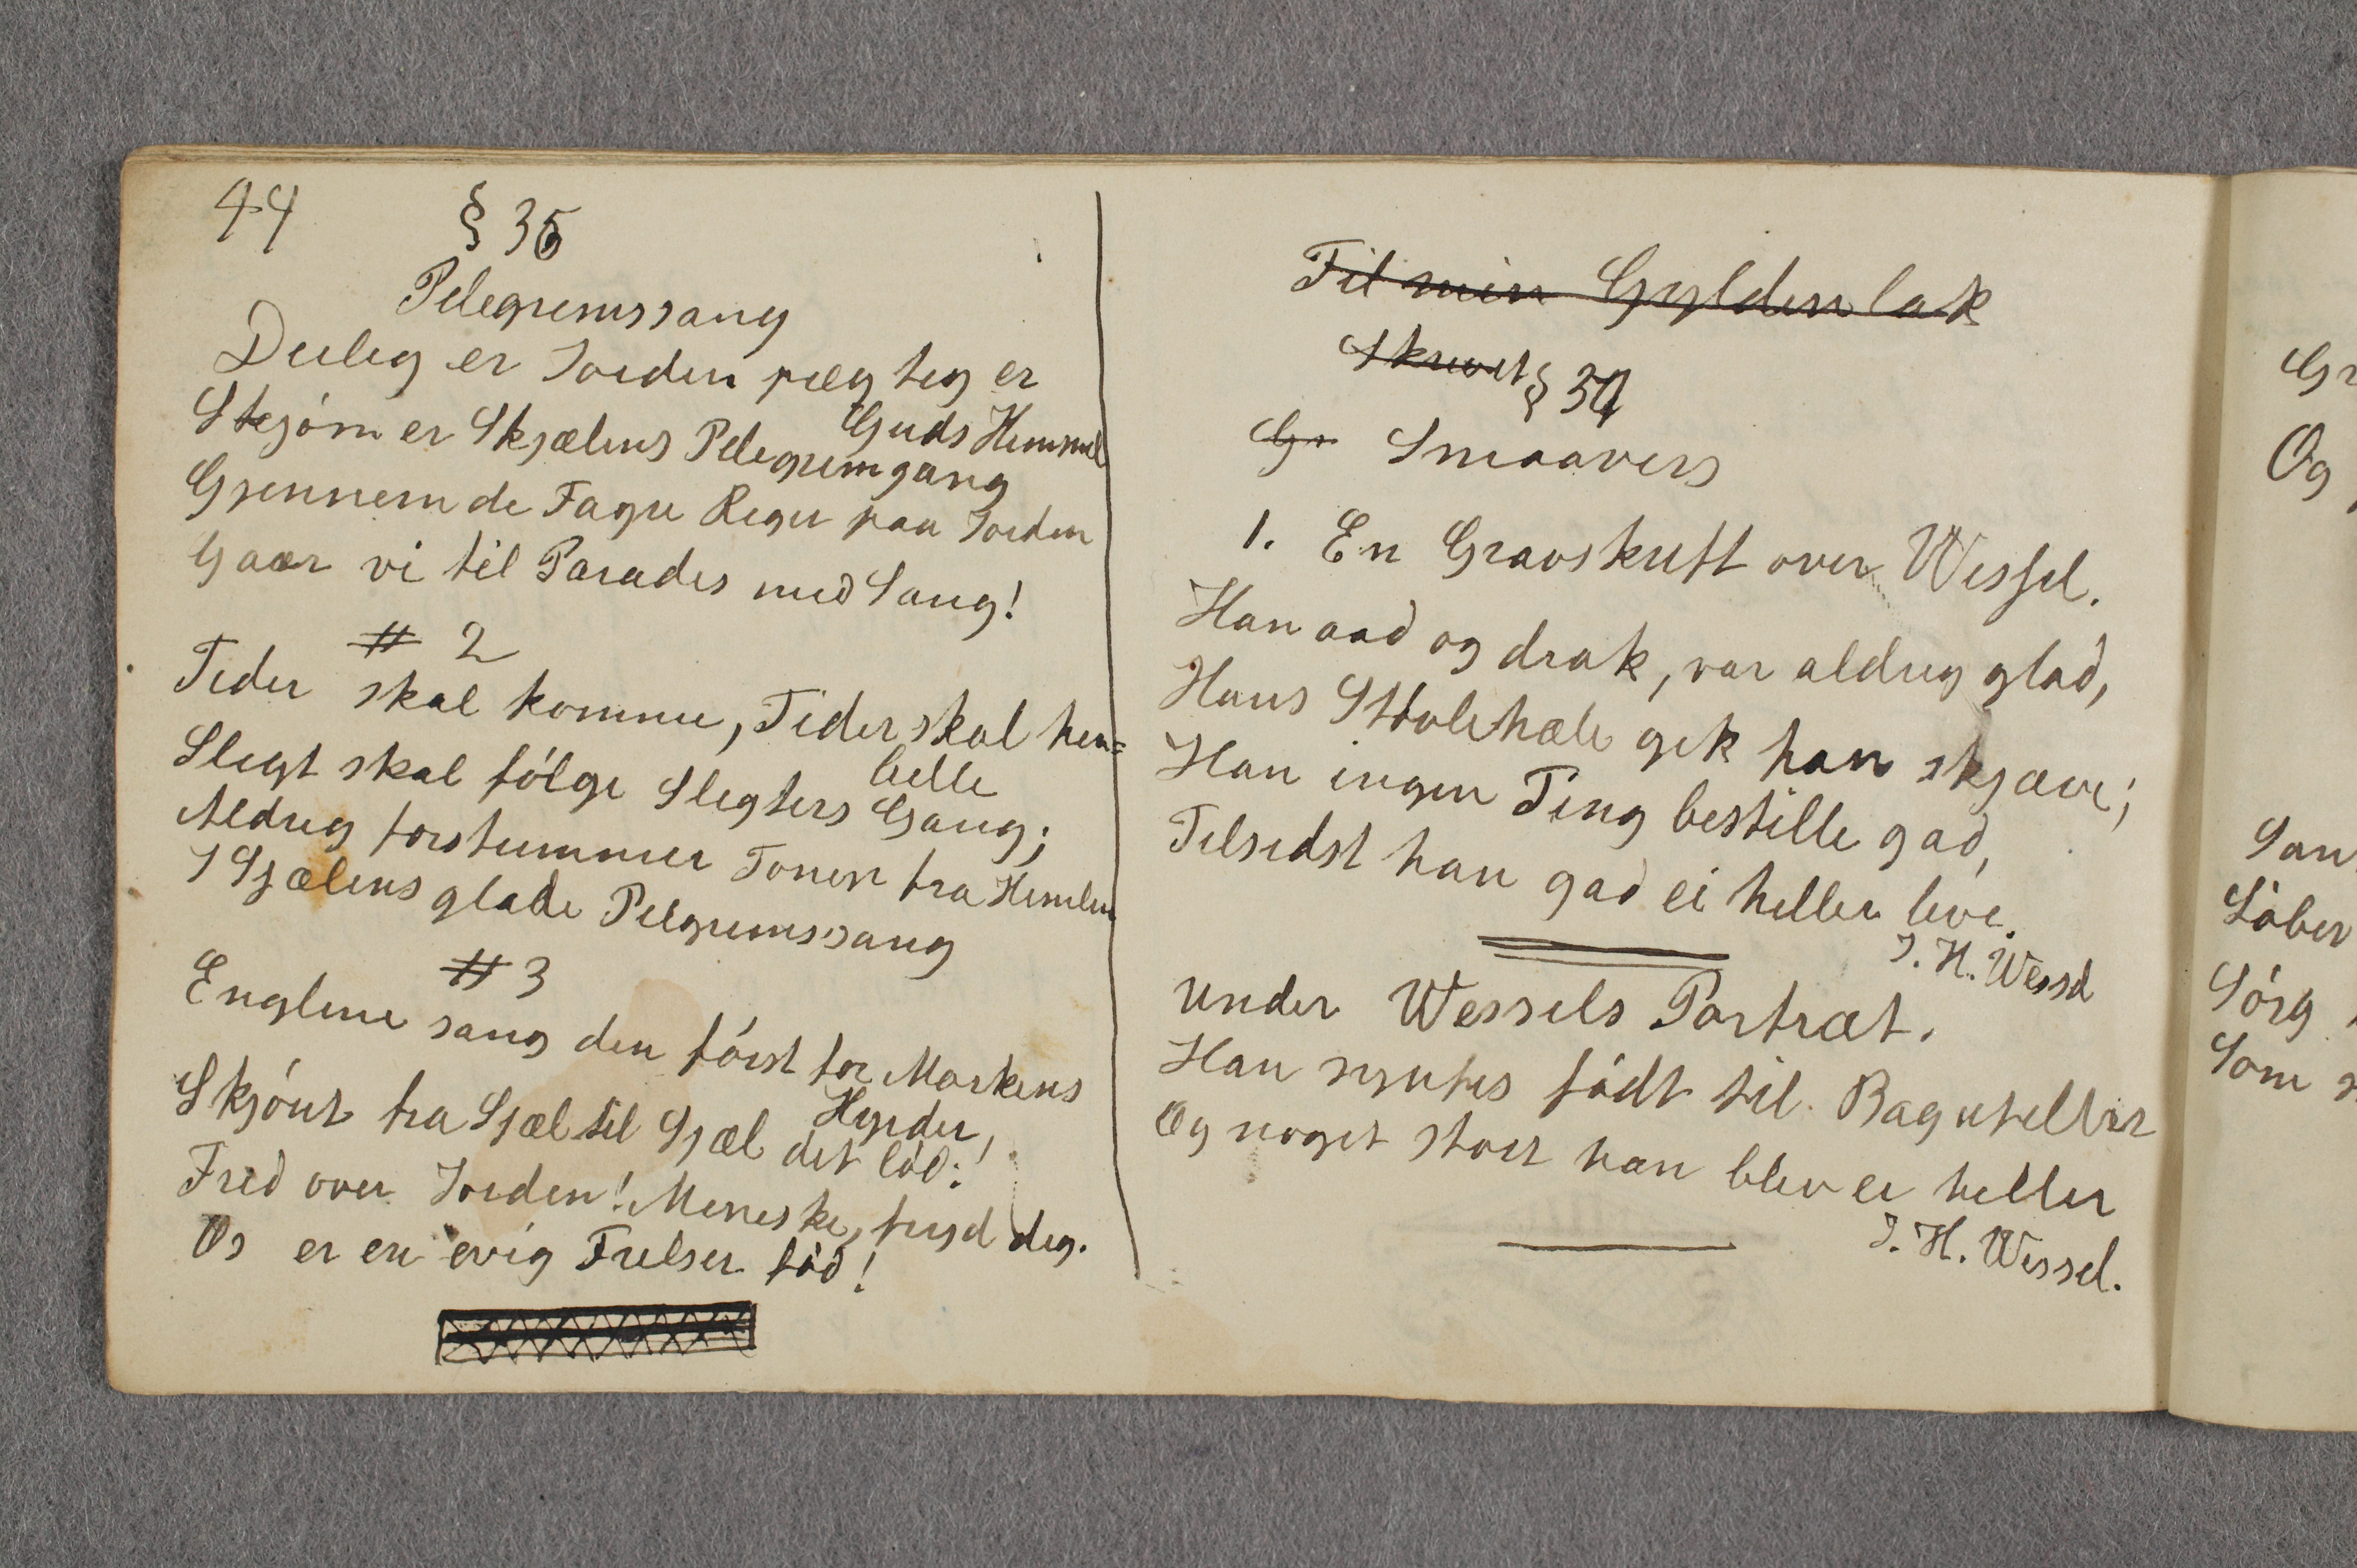 44
§ 36
Pilegrimssang
Deilig er Jorden prægtig er
Guds Himmel
Skjøn er Skjælens Pilegrimgang
Gjennem de Fagre Riger paa Jorden
Gaar vi til Paradis med Sang!
# 2
Tider skal komme, Tider skal hen=
Slegt skal følge Slegters Gang;
Aldrig forstummer Tonen fra Himlen
I Sjælens glade Pilgrimssang
# 3
Englene sang den først for Markens
Hyrder,
Skjønt fra Sjæl til Sjæl det lød:
Fred over Jorden! Meneske, fryd dig.
Os er en evig Frelser fød!
Til min Gyldenlak
Skrevet § 37
Gr Smaavers
1. En Gravskrift over Wessel.
Han aad og drak, var aldrig glad,
Hans Støvlehæle gik han skjæve;
Han ingen Ting bestille gad,
Tilsidst han gad ei heller leve.
J. H. Wessel
Under Wessels Portræt.
Han syntes født til Bagateller
Og noget stort han blev ei heller
J. H. Wessel.
Og
Som